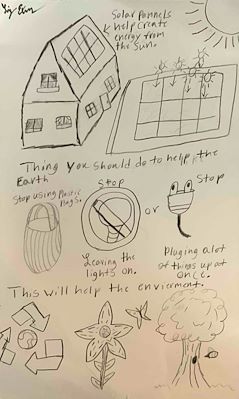 Solar Pannels
help create
energy from
the Sun.
Thing you should do to help the
Earth
Stop using Plastic
Bags.
Stop
Leaving the
lights on.
or
Stop
Pluging a lot
of things up at
once.
This will help the envirment.